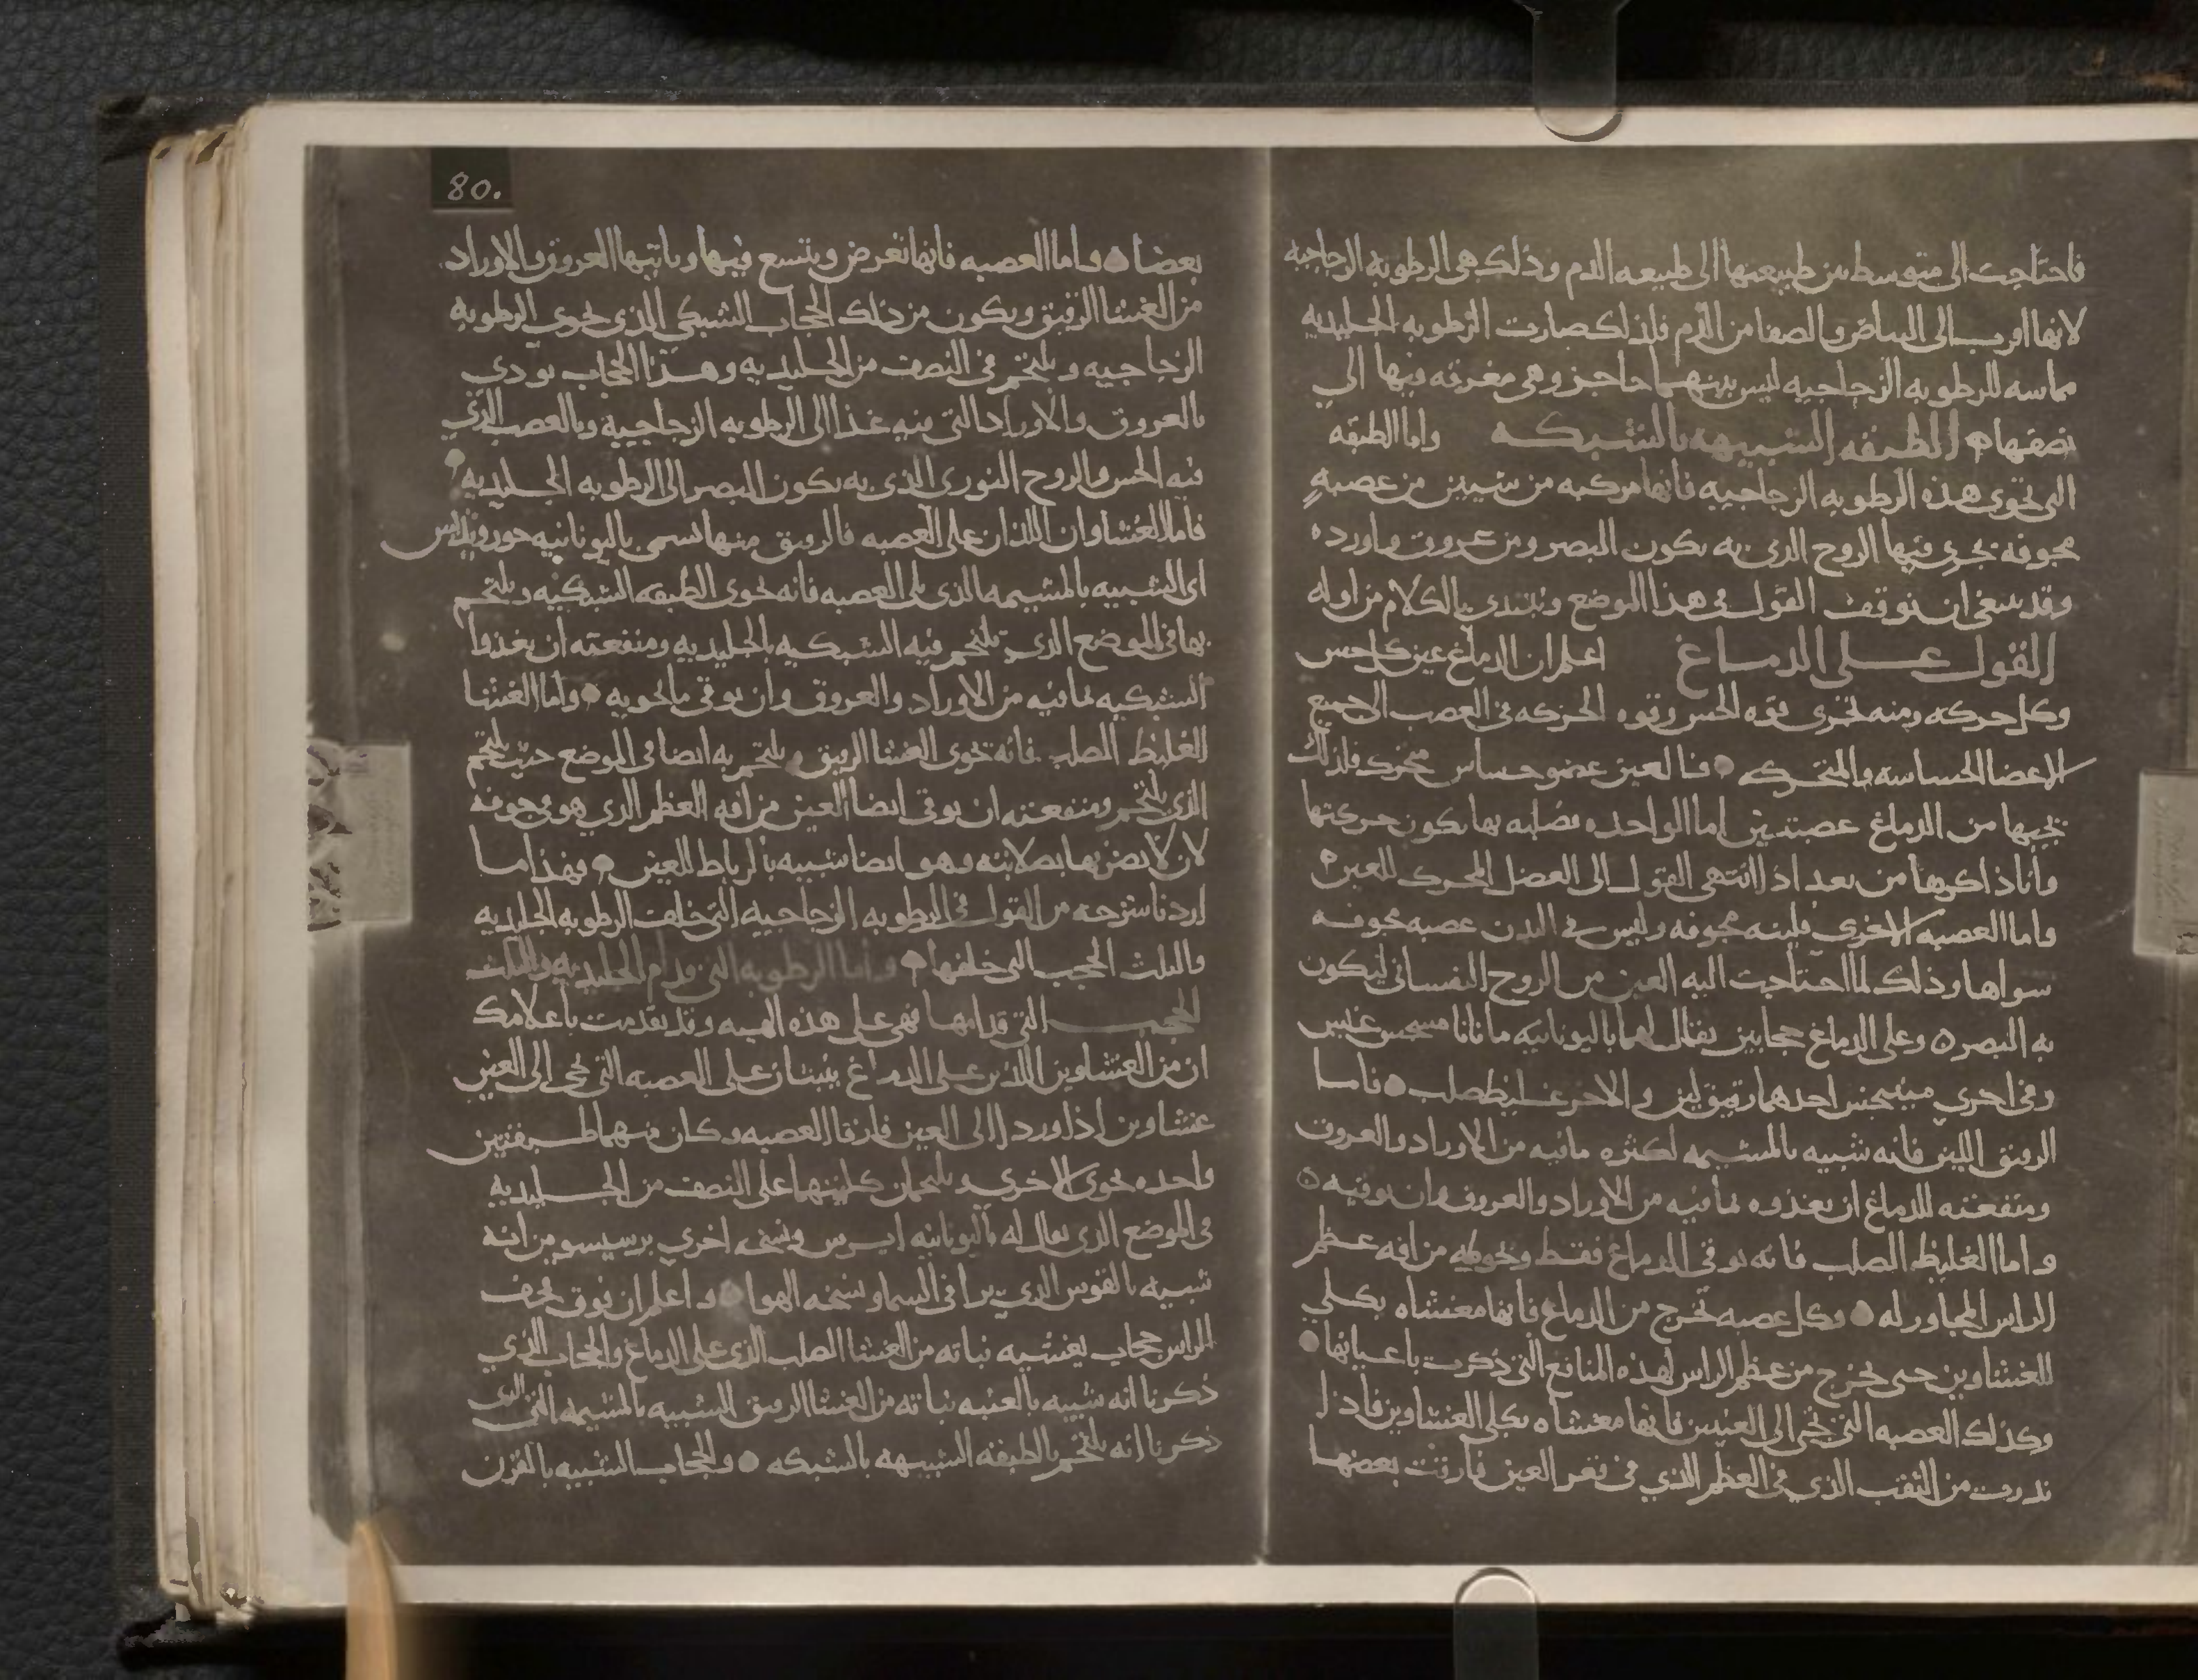 فاحتاجت الى متوسط بين طبيعتها الى طبيعه الدم وذلك هي الرطوبه الزجاجيه
لانها اقرب الى البياض والصفا من الدم فلذلك صارت الرطوبه الجليديه
مماسه للرطوبه الزجاجيه ليس بينهما حاجز وهي مغرقه فيها الى
نصفها الطبقه الشبيهه بالشبكه واما الطبقه
التي تحوى هذه الرطوبه الزجاجيه فانها مركبه من شيين من عصبه
مجوفه يجري فيها الروح الذى به يكون البصر ومن عروق واورده
وقد ينبغى ان نوقف القول في هذا الموضع ونبتدى بالكلام من اوله
القول على الدماغ اعلم ان الدماغ عين كل حس
وكل حركه ومنه تجرى قوه الحس وقوه الحركه في العصب الى جميع
الاعضا الحساسه والمتحركه فالعين عضو حساس متحرك فلذلك
يجيها من الدماغ عصبتين اما الواحده فصلبه بها يكون حركتها
وانا ذاكرها من بعد اذا انتهى القول الى العضل المحرك للعين
واما العصبه الاخرى فلينه مجوفه وليس في البدن عصبه مجوفه
سواها وذلك لما احتاجت اليه العين من الروح النفسانى ليكون
به البصر وعلى الدماغ حجابين يقال لهما باليونانيه مانانا
وفى اخرى احدهما رقيق لين والاخر غليظ صلب فاما
الرقيق اللين فانه شبيه بالمشيمه لكثره مافيه من الاوراد والعروق
ومنفعته للدماغ ان يغذوه لما فيه من الاوراد والعروق وان يوقيه
واما الغليظ الصلب فانه يوقى الدماغ فقط ويحوطه من افه عظم
الراس المجاور له وكل عصبه تخرج من الدماغ فانها مغشاه بكلي
الغشاوين حتى يخرج من عظم الراس لهذه المنافع التى ذكرت باعيانها
وكذلك العصبه التى تجي الى العينين فانها مغشاه بكلى الغشاوين فاذا
ندرت من الثقب الذي في العظم الذي في قعر العين فارقت بعضها
80.
بعضا واما العصبه فانها تعرض وتتسع فيها وياتيها العروق والاوراد
من الغشا الرقيق ويكون من ذلك الحجاب الشبكى الذى يحوي الرطوبه
الزجاجيه ويلتحم في النصف من الجليديه وهذا الحجاب يودى
بالعروق والاوراد التى فيه غذا الى الرطوبه الزجاجيه وبالعصب الذي
فيه الحس والروح النورى الذى به يكون البصر الى الرطوبه الجليديه
فاما الغشاوان اللذان على العصبه فالرقيق منها تسمى باليونانيه
اى الشبيه بالمشيمه الذى يلى العصبه فانه يحوى الطبقه الشبكيه ويلتحم
بها في الموضع الذى تلتحم فيه الشبكيه بالجليديه ومنفعته ان يغذوا
الشبكيه بما فيه من الاوراد والعروق وان يوقى ما يحويه واما الغشا
الغليظ الصلب فانه يحوى الغشا الرقيق ويلتحم به ايضا في الموضع حيث يلتحم
الذى يلتحم ومنفعته ان يوقى ايضا العين من افه العظم الذي هو مجوفه
لان لا يضر بها بصلابته وهو ايضا شبيه بالرباط للعين فهذا ما
اردنا شرحه من القول في الرطوبه الزجاجيه التى خلف الرطوبه الجليديه
والثلث الحجب التى خلفها واما الرطوبه التى قدام الجليديه والثلث
الحجب التى قدامها فهى على هذه الهييه وقد تقدمت باعلامك
ان من الغشاوين اللذين على الدماغ ينبتان على العصبه التى تجى الى العين
غشاوين اذا وردا الى العين فارقا العصبه وكان منهما طبقتين
واحده تحوى الاخرى ويلتحمان كليتهما على النصف من الجليديه
في الموضع الذى يقال له باليونانيه ايرس ونسخه اخري من انه
شبيه بالقوس الذي يرا في السما ونسخه الهوا واعلم ان فوق قحف
الراس حجاب يغشيه نباته من الغشا الصلب الذى على الدماغ والحجاب الذي
ذكرنا انه شبيه بالعنبه نباته من الغشا الرقيق الشبيه بالمشيمه التى
ذكرنا انه يلتحم بالطبقه الشبيهه بالشبكه والحجاب الشبيه بالقرن